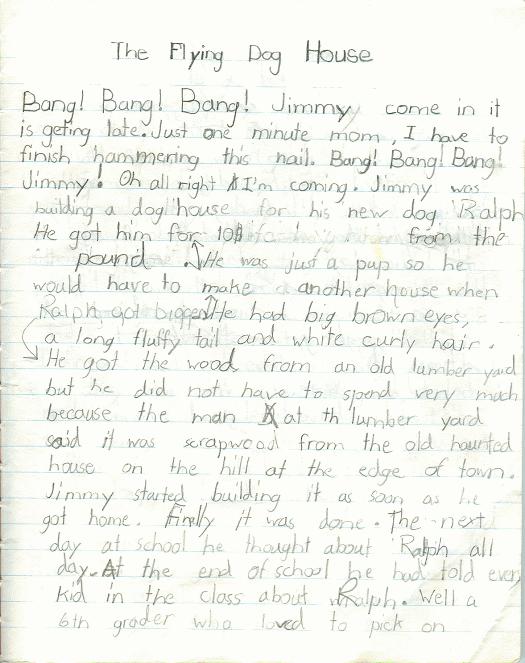 The Flying Dog House
Bang! Bang! Bang! Jimmy come in it
is geting late. Just one minute mom, I have to
finish hammering this nail. Bang! Bang! Bang!
Jimmy! Oh all right I'm coming. Jimmy was
building a dog house for his new dog Ralph
He got him for 10$ from the
pound. He was just a pup so he
would have to make another house when
Ralph got bigger. He had big brown eyes,
a long fluffy tail and white curly hair.
He got the wood from an old lumber yard
but he did not have to spend very much
because the man at th lumber yard
said it was scrapwood from the old haunted
house on the hill at the edge of town.
Jimmy started building it as soon as he
got home. Finlly it was done. The next
day at school he thought about Ralph all
day. At the end of school he had told every
kid in the class about Ralph. Well a
6th grader who loved to pick on